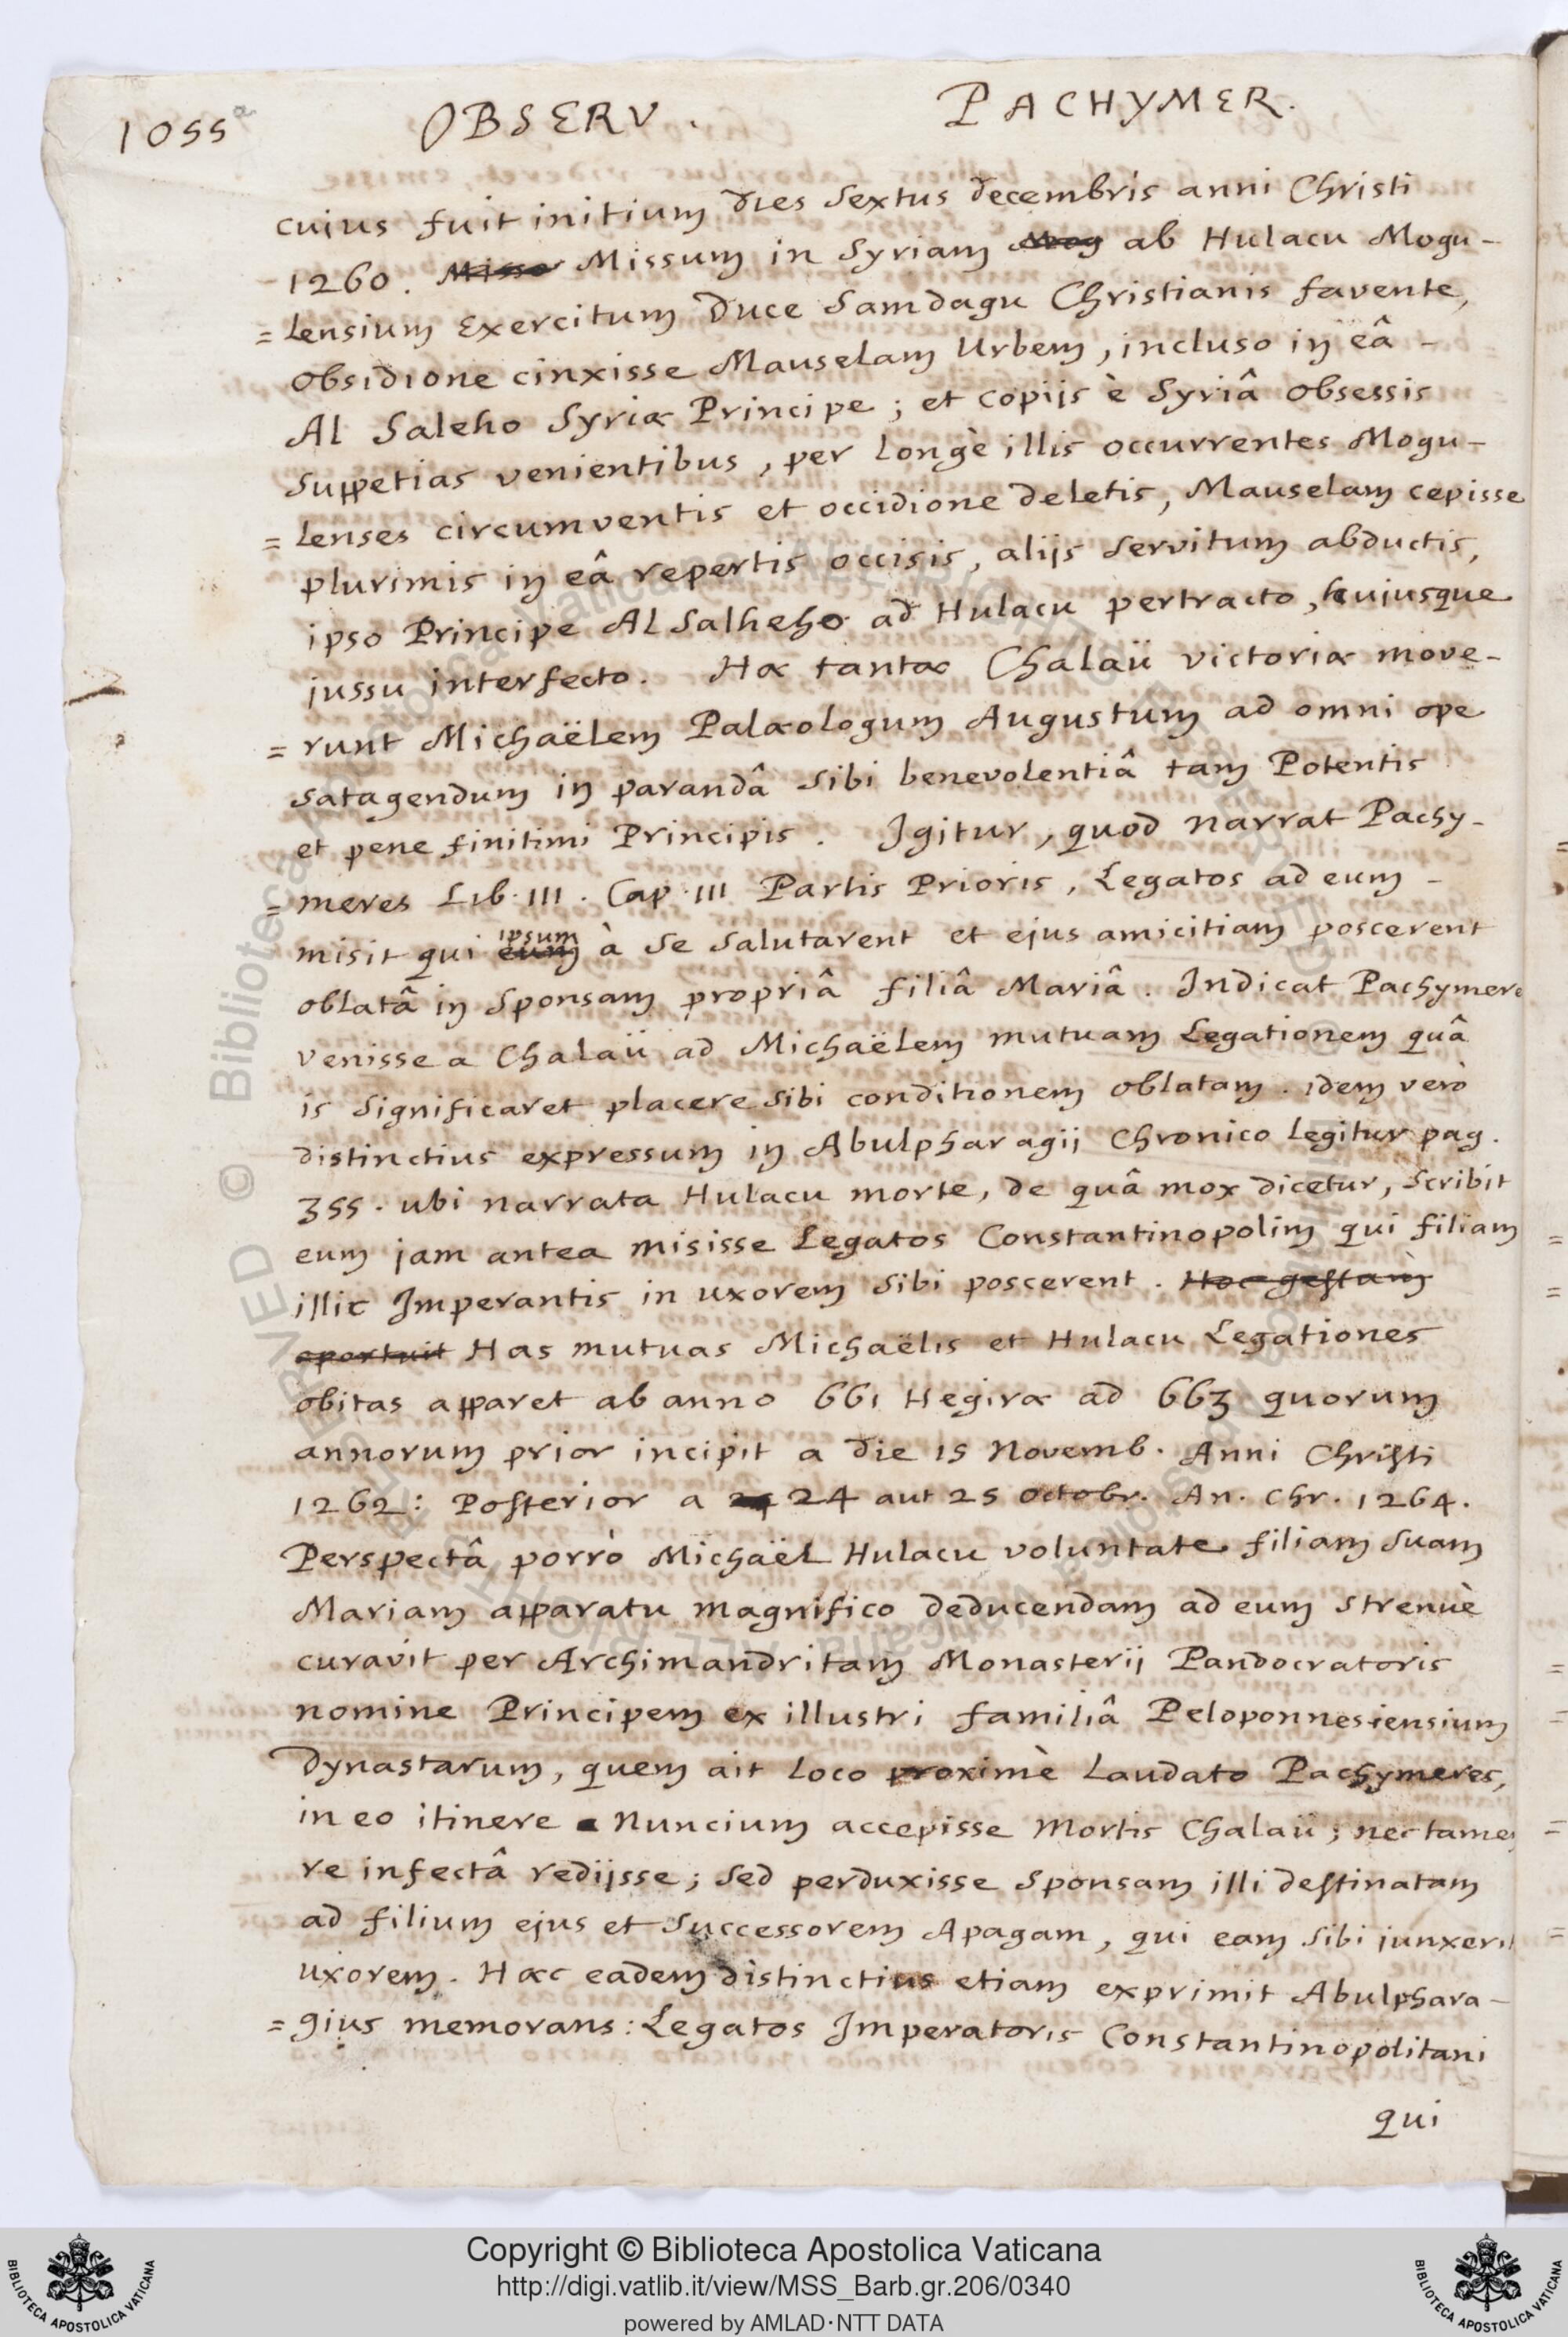 1055a OBSERV. PACHYMER.
cuius fuit initium dies Sextus decembris anni Christi
1260. Misso Missum in Syriam Mog ab Hulacu Mogu-
=lensium Exercitum Duce Samdagu Christianis favente,
Obsidione cinxisse Mauselam Urbem, incluso in eâ -
Al Saleho Syriæ Principe; et copijs è Syriâ obsessis
suppetias venientibus, per longè illis occurrentes Mogu-
=lenses circumventis et occidione deletis, Mauselam cepisse
plurimis in eâ repertis occisis, alijs servitum abductis,
ipso Principe Al Salheho ad Hulacu pertracto, huiusque
jussu interfecto. Hæ tantæ Chalaü victoriæ move-
=runt Michaëlem Palæologum Augustum ad omni ope
satagendum in parandâ sibi benevolentiâ tam Potentis
et pene finitimi Principis. Igitur, quod narrat Pachy-
=meres Lib. III. Cap. III Partis Prioris, Legatos ad eum -
misit qui eum ipsum à se salutarent et ejus amicitiam poscerent
oblatâ in sponsam propriâ filiâ Mariâ. Indicat Pachymere
venisse a Chalaü ad Michaëlem mutuam Legationem quâ
is significaret placere sibi conditionem oblatam. idem verò
distinctius expressum in Abulpharagij Chronico legitur pag.
355. ubi narrata Hulacu morte, de quâ mox dicetur, scribit
eum jam antea misisse Legatos Constantinopolim qui filiam
illic Imperantis in uxorem sibi poscerent. Hoc gestam
oportuit Has mutuas Michaëlis et Hulacu Legationes
obitas apparet ab anno 661 Hegiræ ad 663 quorum
annorum prior incipit a die 15 Novemb. Anni Christi
1262: Posterior a 24 24 aut 25 octobr. An. Chr. 1264.
Perspectâ porrò Michaël Hulacu voluntate filiam suam
Mariam apparatu magnifico deducendam ad eum strenuè
curavit per Archimandritam Monasterij Pandocratoris
nomine Principem ex illustri familiâ Peloponnesiensium
Dynastarum, quem ait loco proximè laudato Pachymeres,
in eo itinere Nuncium accepisse Mortis Chalaü; nec tamen
re infectâ redijsse; sed perduxisse sponsam illi destinatam
ad filium ejus et Successorem Apagam, qui eam sibi junxerit
uxorem. Hæc eadem distinctius etiam exprimit Abulphara-
=gius memorans: Legatos Imperatoris Constantinopolitani
qui
Copyright © Biblioteca Apostolica Vaticana
http://digi.vatlib.it/view/MSS_Barb.gr.206/0340
powered by AMLAD·NTT DATA